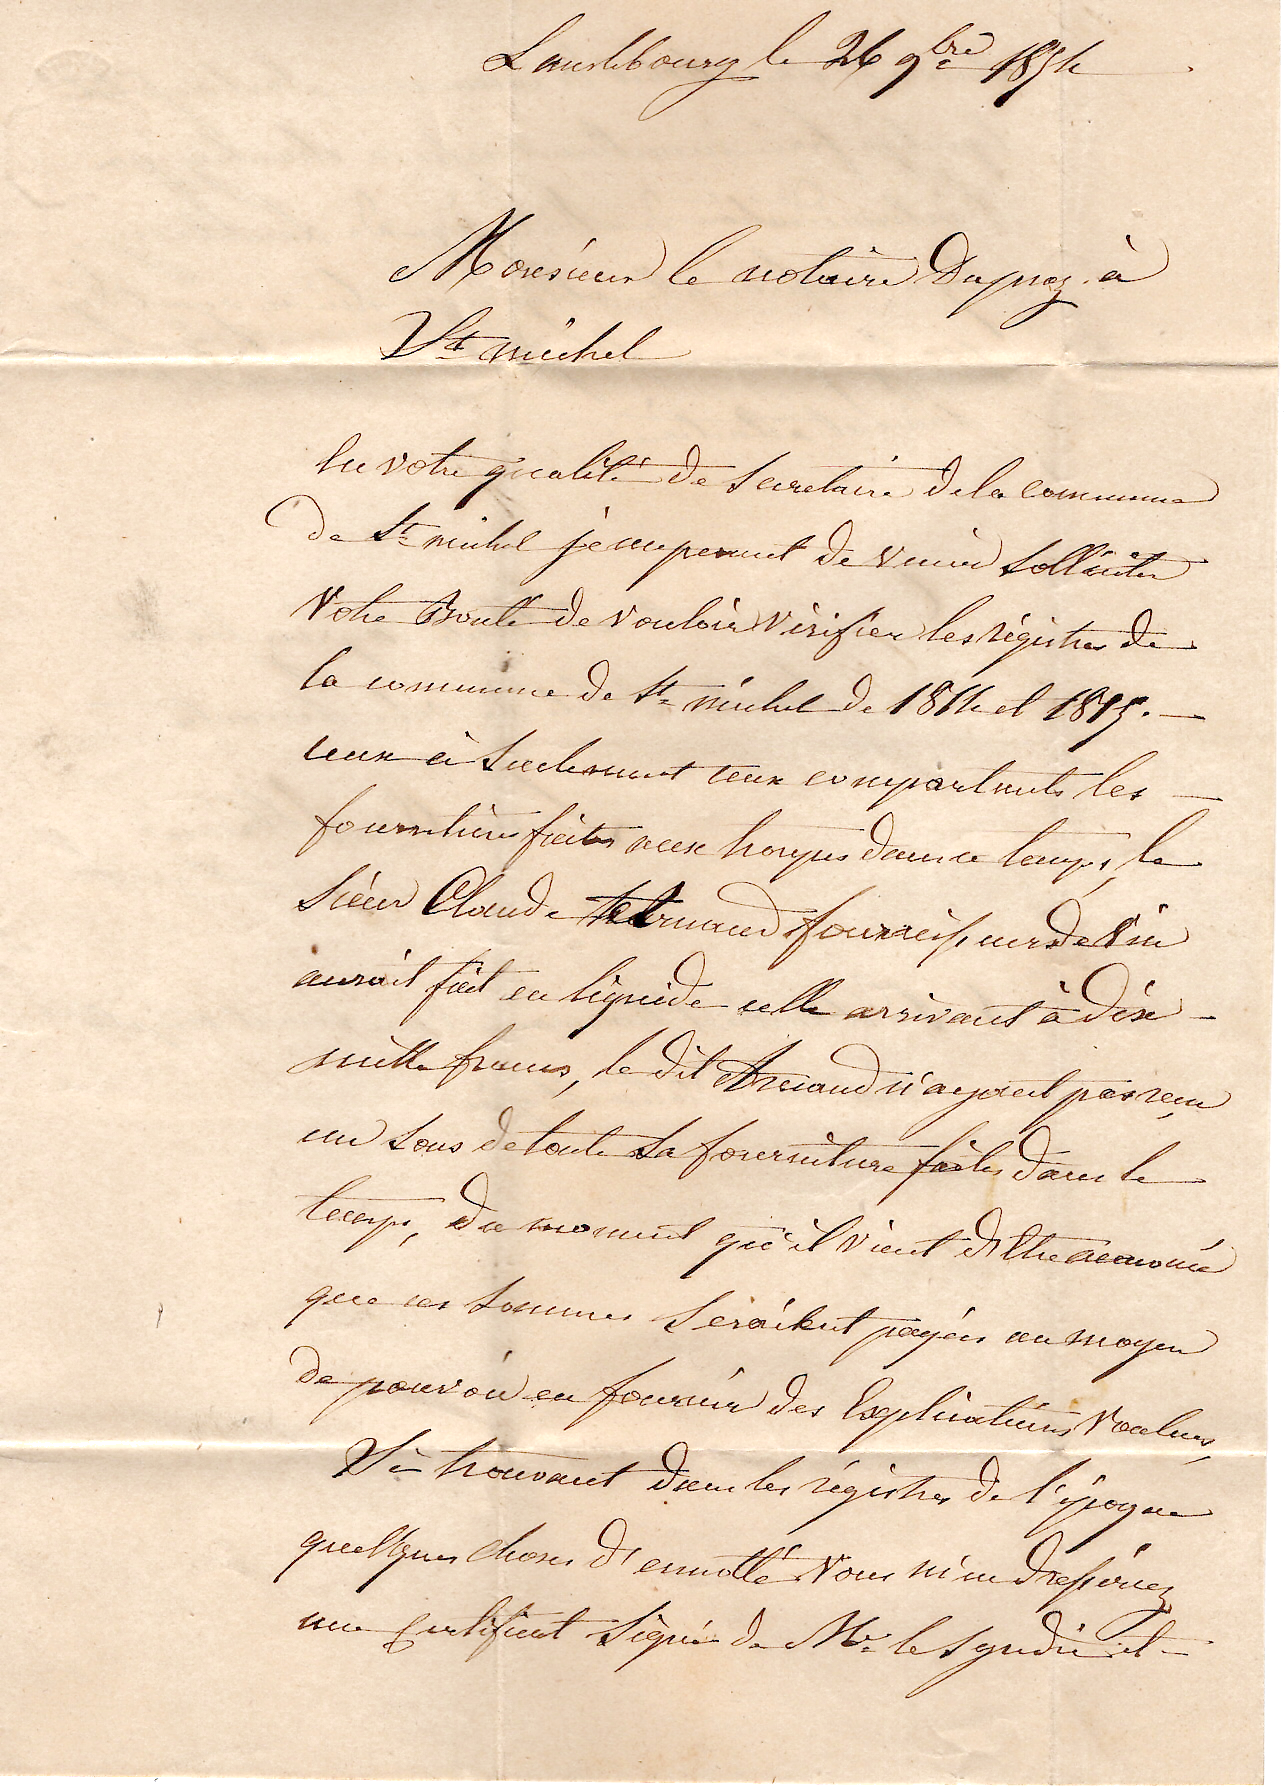 Lanslebourg le 26 9bre 1854
Monsieur le notaire Dupraz à
St michel
En votre qualité de Secretaire de la commune
de St michel je me permet de venir Solliciter
Votre Bonté de vouloir Vérifier les régistres de
la commune de St michel de 1814 et 1815. —
ceux ci Seulement ceux comportants les —
fournitures faites aux troupes dans ce temps, le
Siéur Claude Arnaud fournisseur de Vin
auroit fait en liquide celle arrivant à dix —
mille francs, le dit Arnaud n'ayant pas reçu
un Sous de toute Sa fourniture faites dans le
temps, du moment qu'il vient d'être annoncé
que ces Sommes Seroient payées au moyen
de pouvoir en fournir des Explications Voulues,
Si trouvant dans les régistres de l'époque
quelques choses d'annotté Vous m'en dresseriez
une Certificat Signé de Mr le Syndic et —